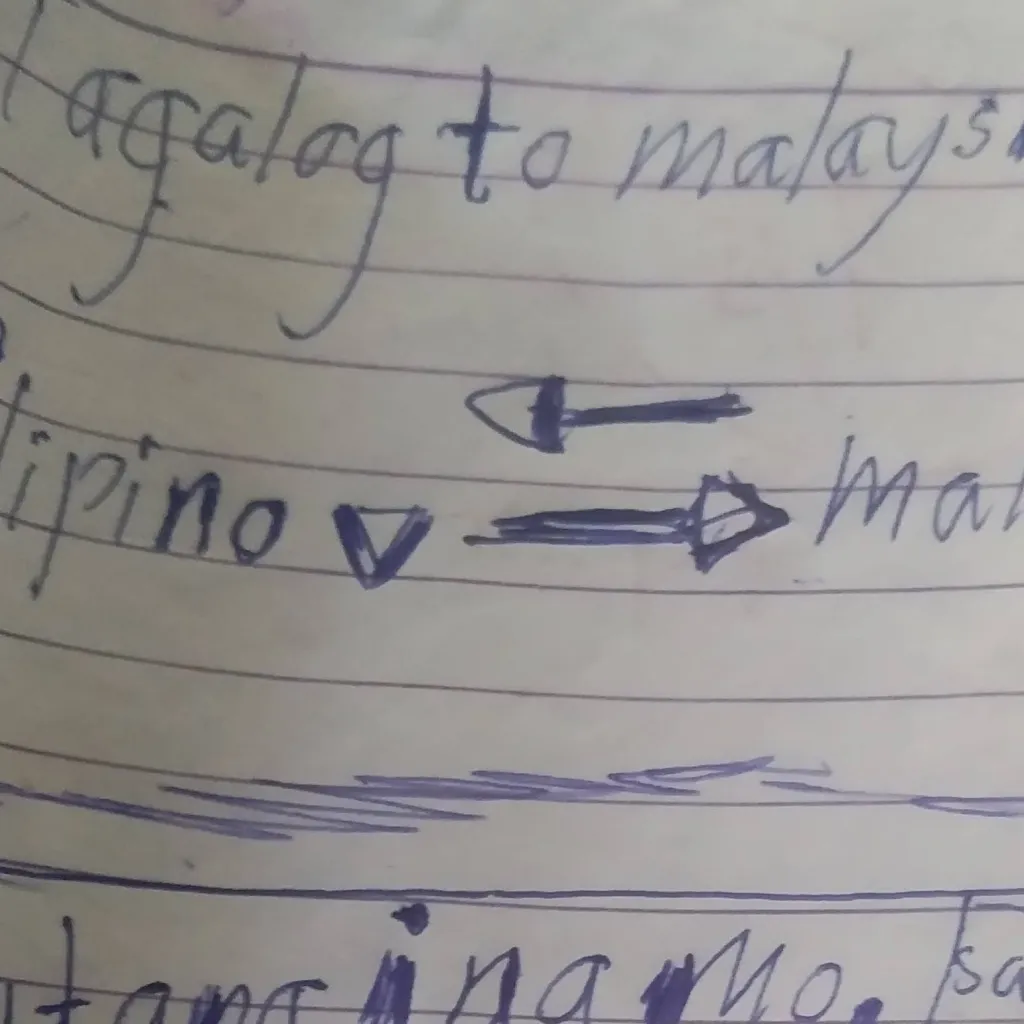 Tagalog to malays
lipino mal
tang ina mo. sa